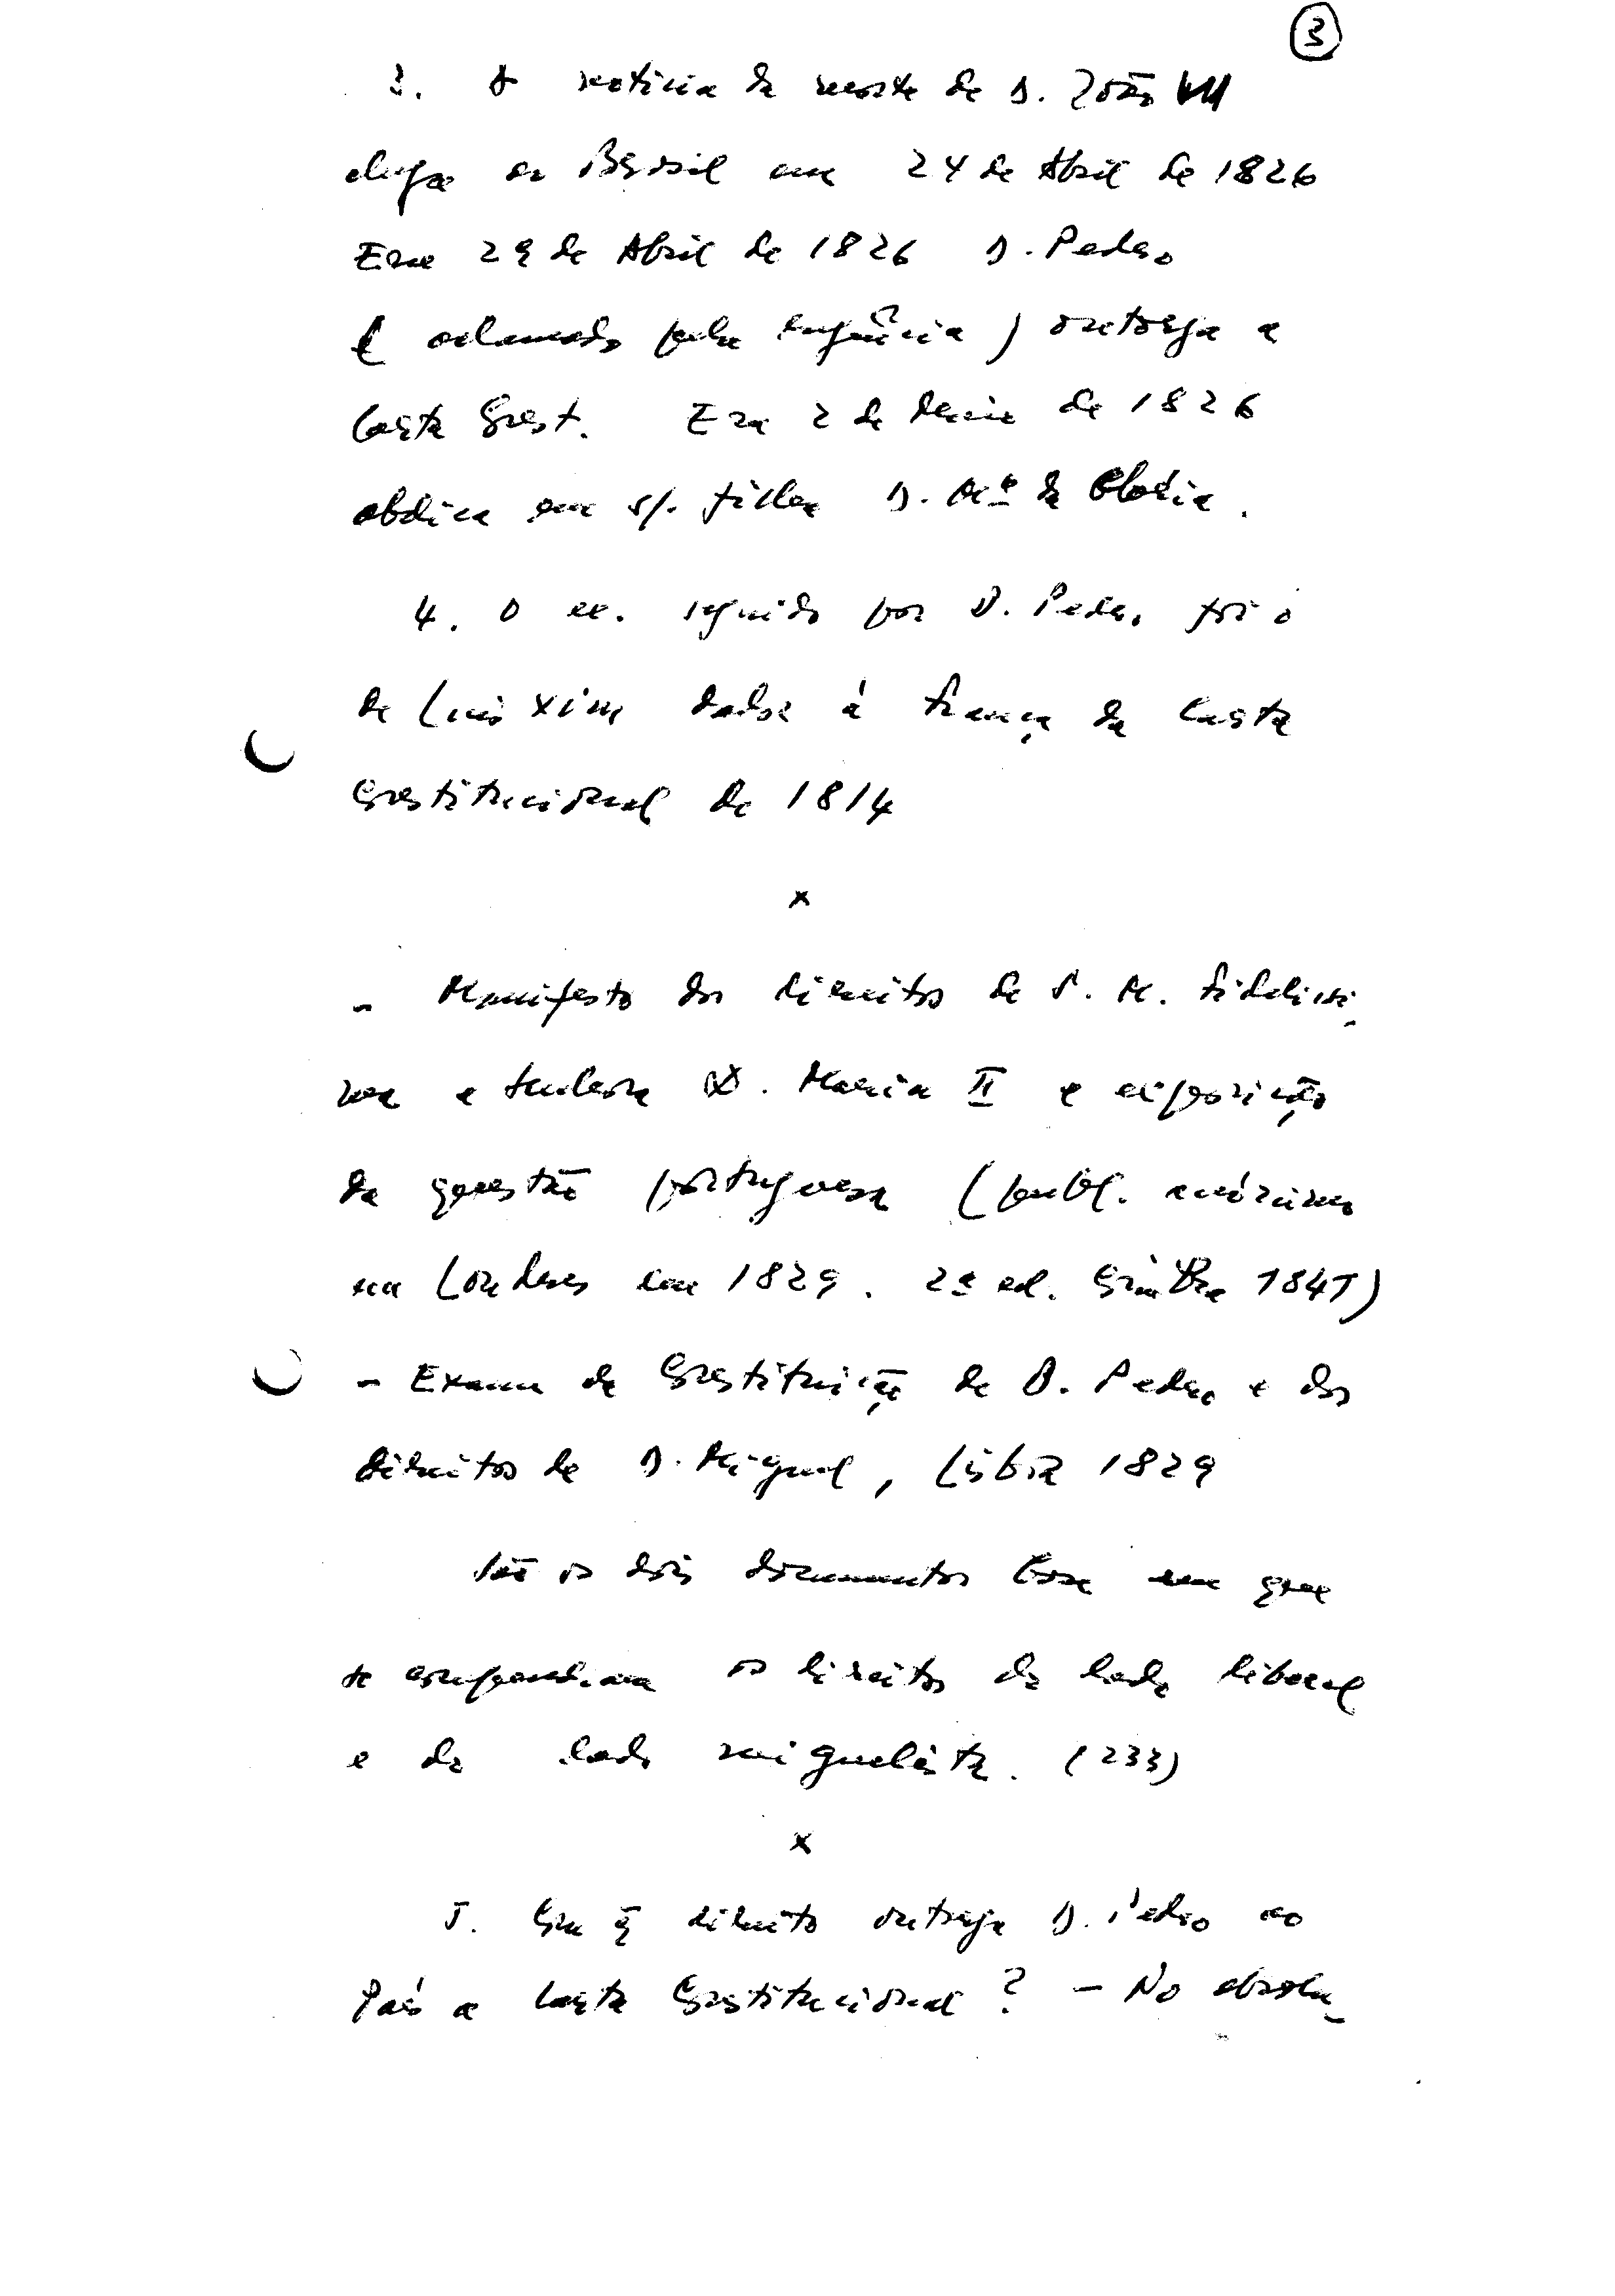 3
3. A noticia da morte de D. João VI
chega ao Brasil em 24 de Abril de 1826
Em 29 de Abril de 1826 D. Pedro
(aclamado pela regência) outorga a
Carta Const. Em 2 de Maio de 1826
abdica em s/. filha D. Mª da Glória.
4. O ex. seguido por D. Pedro foi o
de Luis XVIII dador à França da Carta
Constitucional de 1814
x
- Manifesto dos direitos de S. M. Fidelissi-
ma a Senhora D. Maria II e exposição
da questão portuguesa (publ. anónimo
em Londres em 1829. 2ª ed. Coimbra 1841)
- Exame da Constituição de D. Pedro e dos
direitos de D. Miguel, Lisboa 1829
São os dois documentos base em que
se compendiam os direitos do lado liberal
e do lado miguelista. (233)
x
5. Com q̃ direito outorga D. Pedro ao
País a Carta Constitucional? - No absolu-